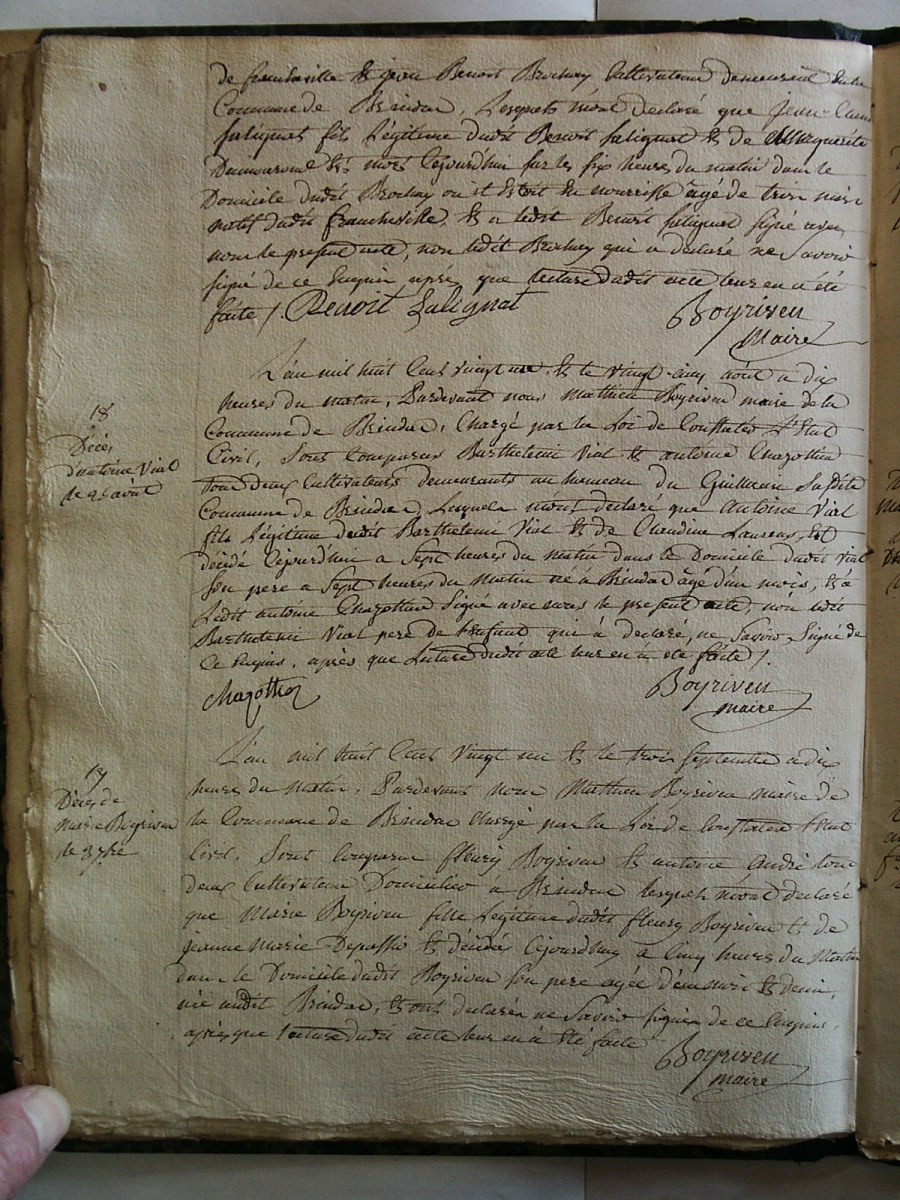 de francheville et jean Benoit Brochay Cultivateur demeurant en la
Commune de Brindas, Lesquels m'ont declaré que jean
Salignat fils Légitime dudit Benoit Salignat et de Marguerite
est mort Cejourdhui sur les six heures du matin dans le
Domicile dudit Brochay ou il Etoit En nourrisse âgé de trois mois
natif dudit francheville, et a ledit Benoit Salignat signé avec
nous le present acte, non ledit Brochay qui a declaré ne Savoir
signé de ce Enquis après que lecture dudit acte leur en a été
faite /. Benoit Salignat
Boyriven
Maire
18
Décès
d'antoine Vial
de 25 août
L'an mil huit Cent vingt un et le vingt cinq août a dix
heures du matin, Pardevant nous Mathieu Boyriven maire de la
Commune de Brindas, Chargé par la Loi de Constater L'Etat
Civil, Sont Comparus Barthelemi Vial et antoine Chazottier
tous deux Cultivateurs demeurants au hameau du Guillermin Susdite
Commune de Brindas, Lesquels m'ont declaré que Antoine Vial
fils Légitime dudit Barthelemi Vial et de Claudine Laurent, Est
décédé Cejourdhui a Sept heures du matin dans Le Domicile dudit Vial
Son pere a Sept heures du Matin né à Brindas âgé d'un mois, et à
Ledit antoine Chazottier Signé avec nous le present acte, non ledit
Barthelemi Vial pere de l'enfant qui à declaré, ne Savoir Signé de
Ce Enquis, après que Lecture dudit acte leur en à été faite /.
Chazottier
Boyriven
maire
19
Décès de
Marie Boyriven
le 3 7bre
L'an mil huit Cent vingt un et le trois Septembre a dix
heures du Matin, Pardevant nous Mathieu Boyriven maire de
la Commune de Brindas chargé par la Loi de Constater l'Etat
Civil, Sont Comparus fleury Boyriven et antoine andré tous
deux Cultivateur Domiciliés à Brindas lesquels m'ont declaré
que Marie Boyriven fille Légitime dudit fleury Boyriven et de
jeanne Marie est décédée Cejourdhuy à Cinq heures du Matin
dans le Domicile dudit Boyriven Son pere agée d'un mois et demi,
née audit Brindas, et ont declarés ne Savoir signer de ce Enquis,
après que Lecture dudit acte leur en à été faite
Boyriven
maire